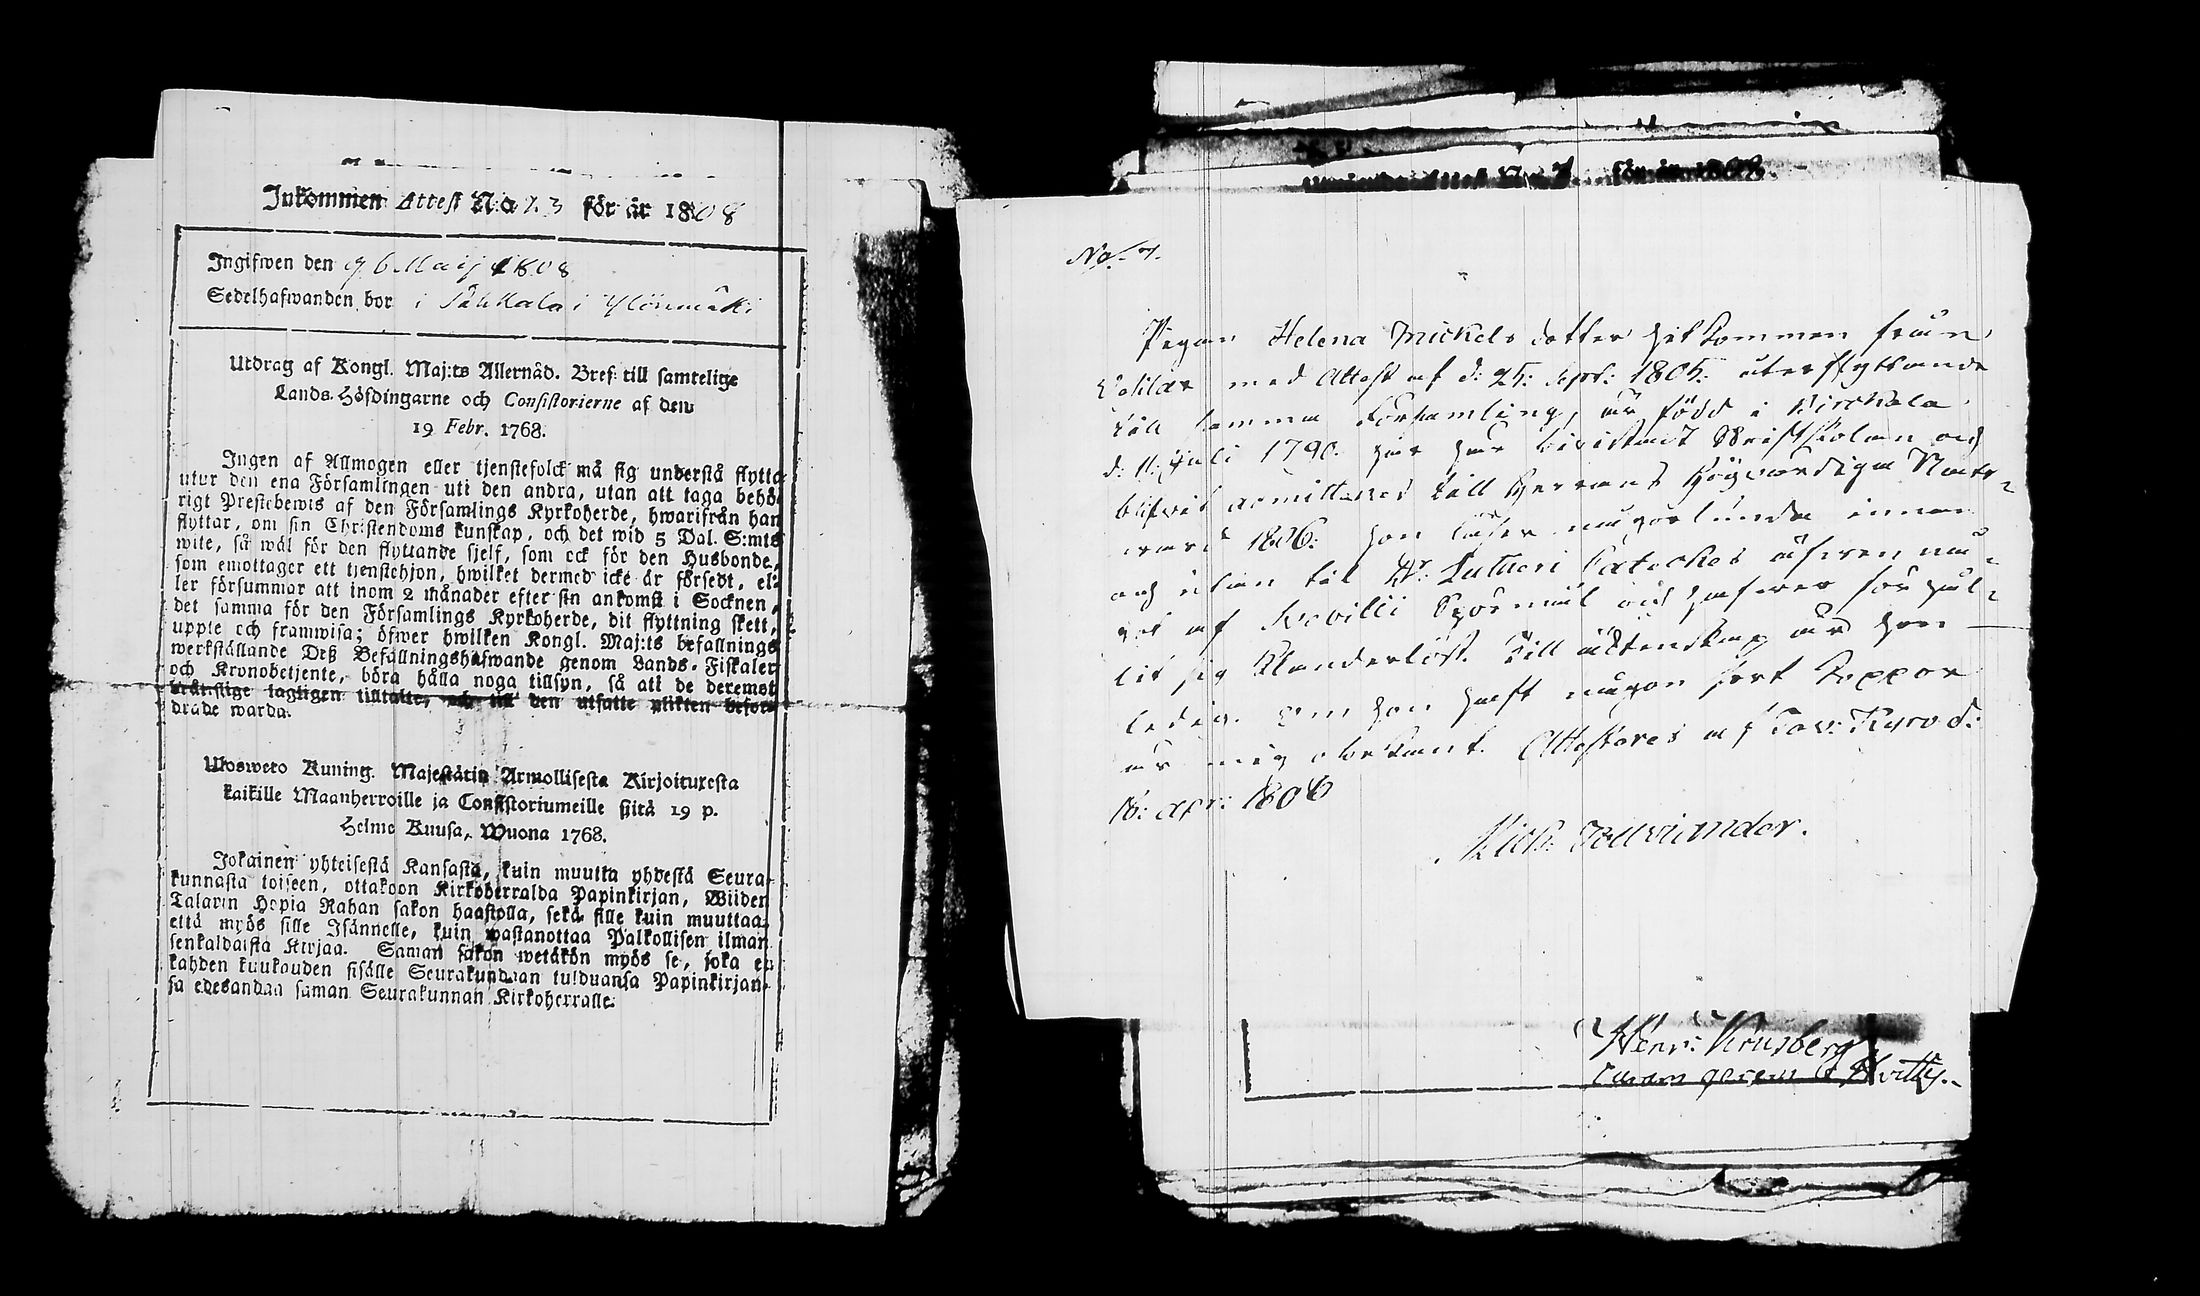 Inkommen Attest N:o 7.3 för år 1808
Ingifwen den 96 Maij 1808
Sedelhafwanden bor i Sahkala i Ylönmäki
Utdrag af Kongl. Maj:ts Allernåd. Bref till samtelige
Lands-Höfdingarne och Consistorierne af den
19 Febr. 1768.
Ingen af Allmogen eller tjenstefolck må sig understå flytta
utur den ena Församlingen uti den andra, utan att taga behö-
rigt Prestebewis af den Församlings Kyrkoherde, hwarifrån han
flyttar, om sin Christendoms kunskap, och det wid 5 Dal. S:mts
wite, så wäl för den flyttande sjelf, som ock för den Husbonde,
som emottager ett tjenstehjon, hwilket dermed icke är försedt, el-
ler försummar att inom 2 månader efter sin ankomst i Socknen,
det samma för den Församlings Kyrkoherde, dit flyttning skett,
uppte och framwisa; öfwer hwilken Kongl. Maj:ts befallnings
werkställande Deß Befallningshafwande genom Lands-Fiskaler
och Kronobetjente, böra hålla noga tillsyn, så att de deremot
bråtslige lagligen tilltalte, och till den utsatte plikten befor-
drade warda.
Ulosweto Kuning. Majestätin Armollisesta Kirjoituxesta
kaikille Maanherroille ja Consistoriumeille siitä 19 p.
Helme Kuusa, Wuona 1768.
Jokainen yhteisestä Kansasta, kuin muutta yhdestä Seura-
kunnasta toiseen, ottakoon Kirkoherralda Papinkirjan, Wiiden
Talarin Hopia Rahan sakon haastolla, sekä sille kuin muuttaa,
että myös sille Isännelle, kuin wastanottaa Palkollisen ilman
senkaldaista Kirjaa. Saman sakon wetäkön myös se, joka ei
kahden kuukauden sisälle Seurakundaan tulduansa Papinkirjan-
sa edesandaa saman Seurakunnan Kirkoherralle.
för år 1808.
No. 7.
Pigan Helena Mickelsdotter hitkommen från
med Attest af d: 25: Sept: 1805: återflyttande
till samma Församling, är född i Birckala
d: 11. Juli 1790. har bivistadt Skriftskolan och
blifvit admitterad till Herrans Högvördiga Natt-
vard 1806. hon läser någorlunda innan
och utan till Dr: Lutheri Cateches äfven nå-
got af Svebilii Spörsmål och hafver förhål-
lit sig klanderlöst. Till äktenskap är hon
ledig. Om hon haft någon sort Koppor
är mig obekant. Attesteras af Tav: Kyro d:
16: apr: 1806
Henr: Krusberg
curam gerens